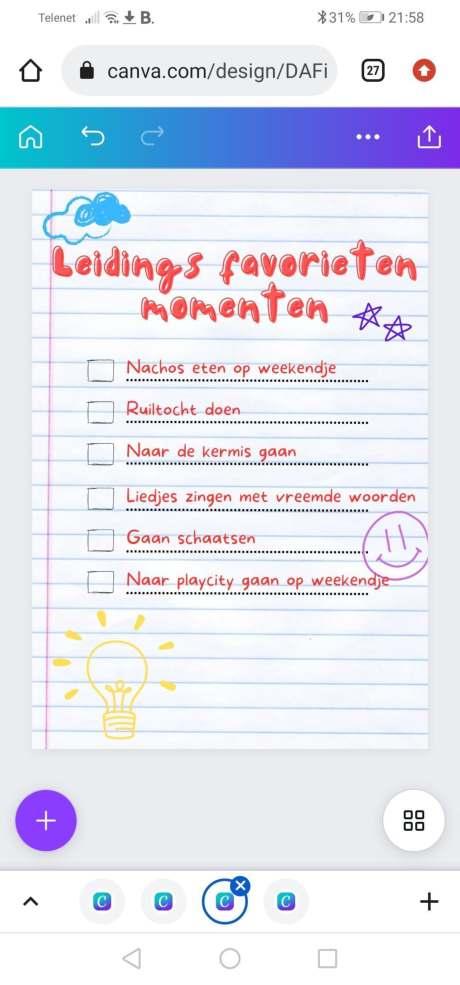 Telenet B. 31% 21:58
canva.com/design/DAFi 27
Leidings favorieten
momenten
Nachos eten op weekendje
Ruiltocht doen
Naar de kermis gaan
Liedjes zingen met vreemde woorden
Gaan schaatsen
Naar playcity gaan op weekendje